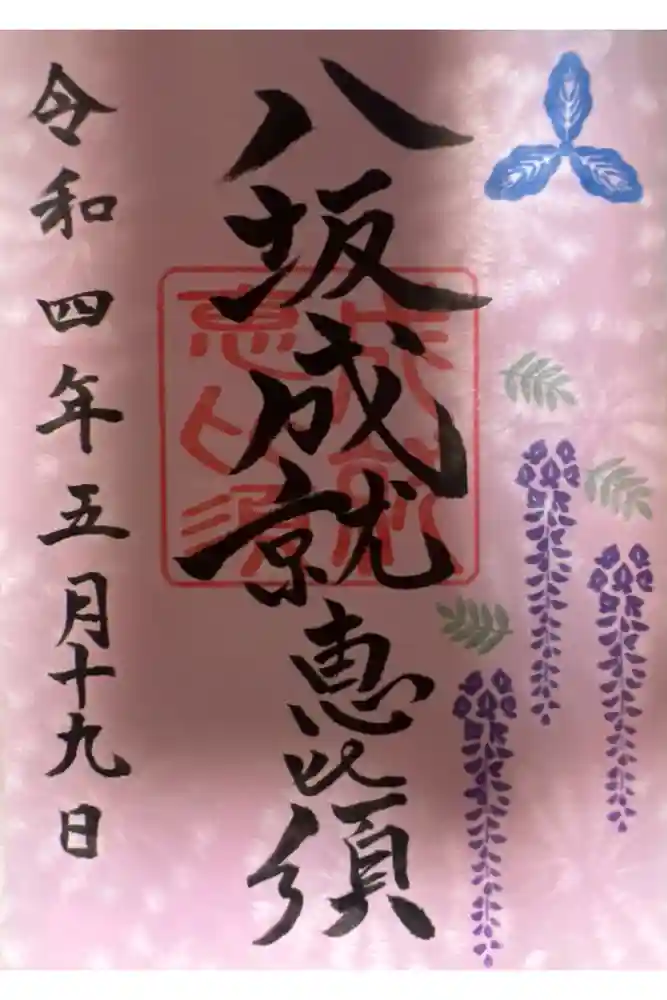 八坂成就恵比須
成就
恵比須
令和四年五月十九日